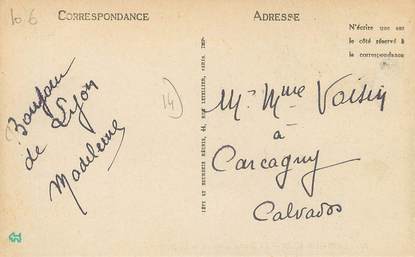 106
CORRESPONDANCE
ADRESSE
N'écrire que sur
le côté réservé à
la correspondance
Bonjour
de Lyon
Madeleine
14
Mr Mme Voisin
à
Carcagny
Calvados